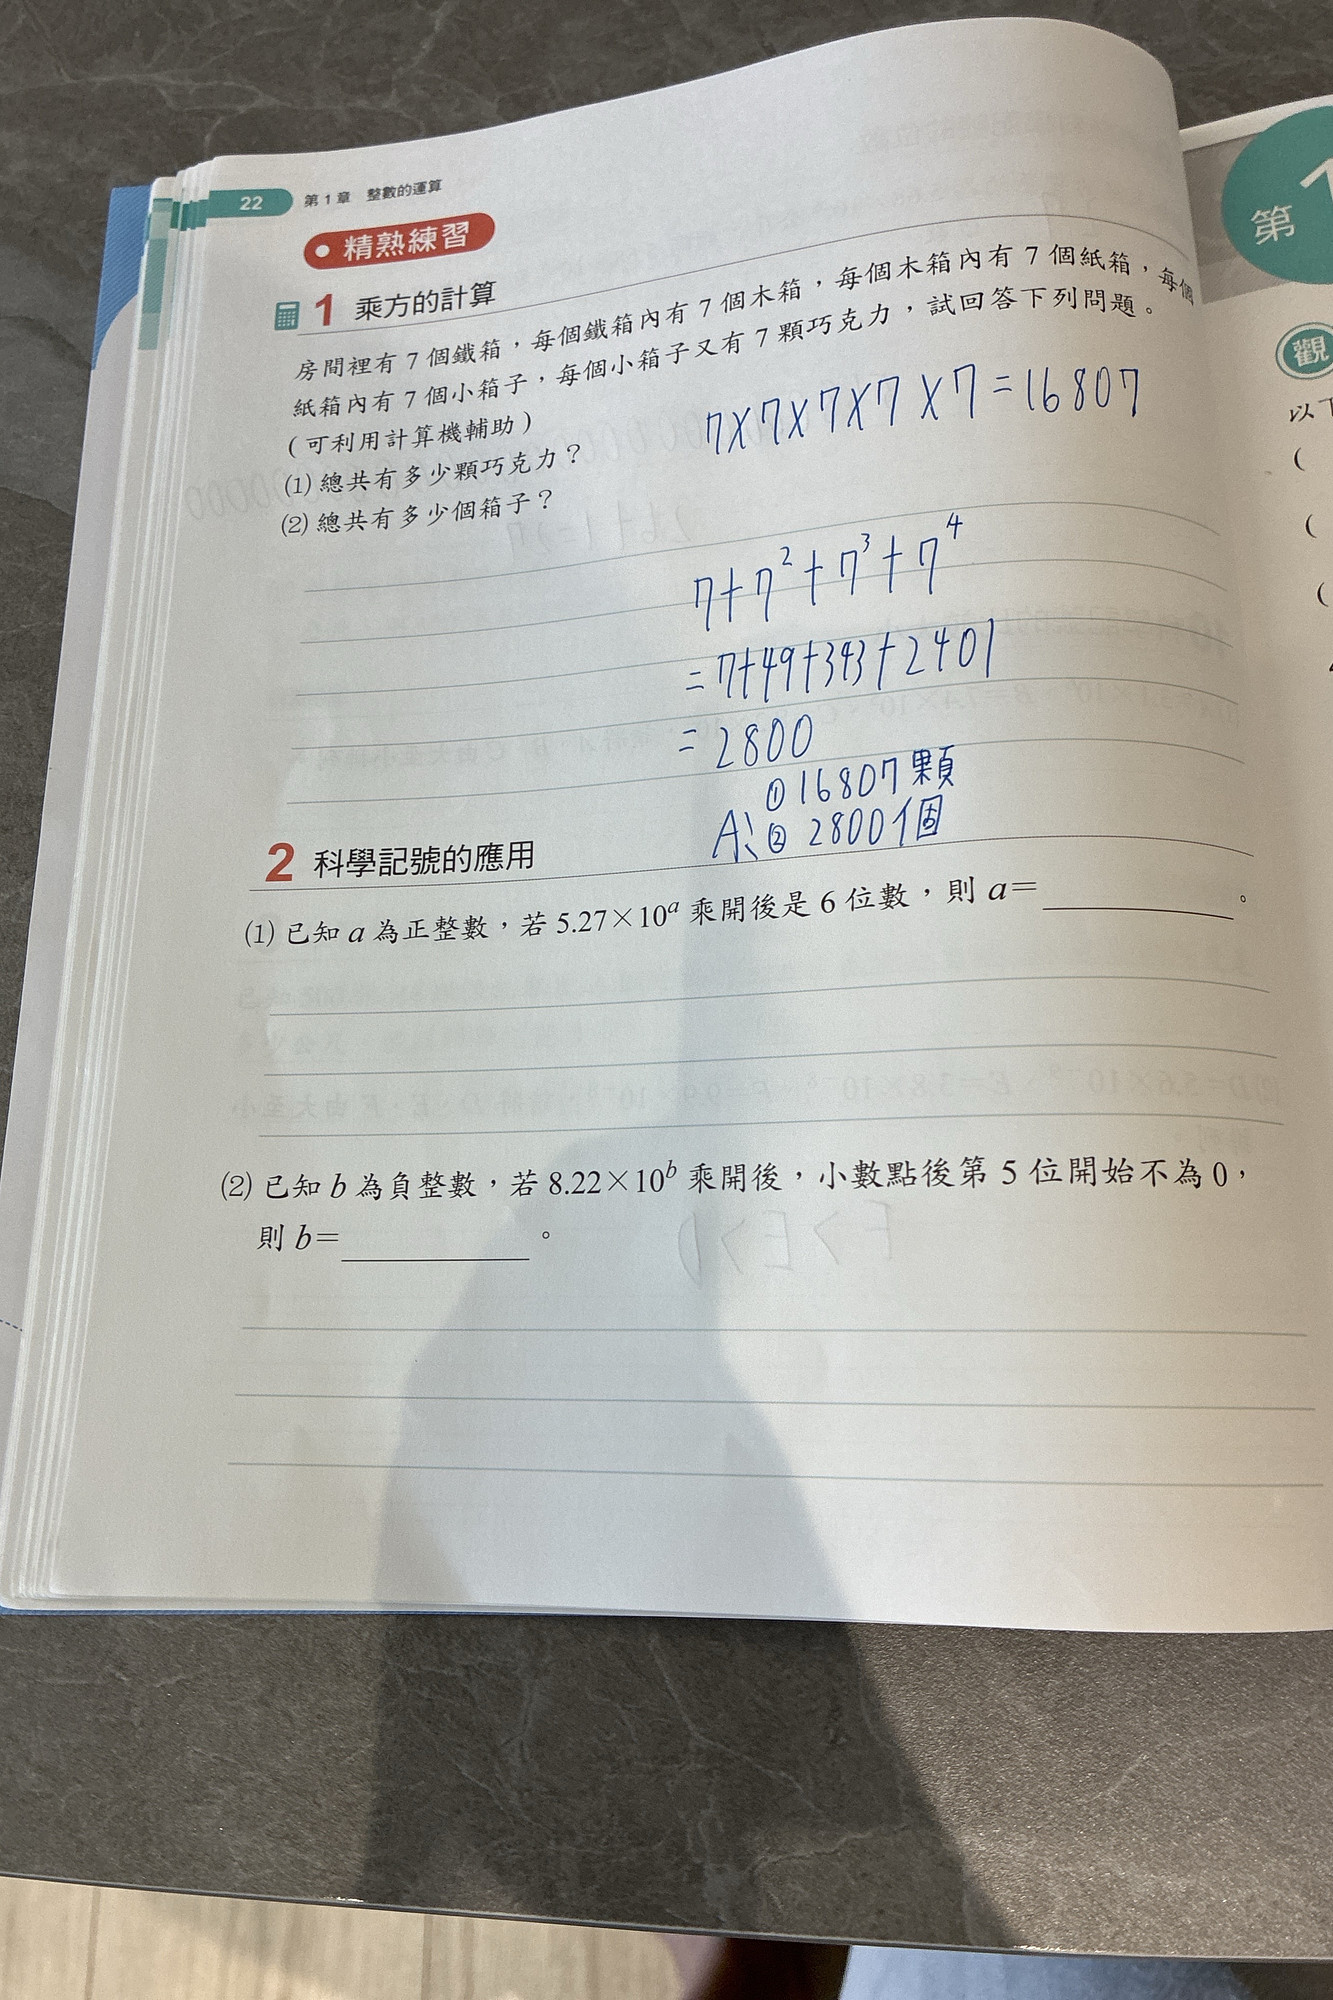 22 第1章 整數的運算
精熟練習
1 乘方的計算
房間裡有 7 個鐵箱，每個鐵箱內有 7 個木箱，每個木箱內有 7 個紙箱，每個
紙箱內有 7 個小箱子，每個小箱子又有 7 顆巧克力，試回答下列問題。
(可利用計算機輔助)
7×7×7×7×7=16807
⑴ 總共有多少顆巧克力？
⑵ 總共有多少個箱子？
7+7²+7³+7⁴
=7+49+343+2401
=2800
① 16807顆
A: ② 2800個
2 科學記號的應用
⑴ 已知 a 為正整數，若 5.27×10ᵃ 乘開後是 6 位數，則 a=＿＿＿＿。
⑵ 已知 b 為負整數，若 8.22×10ᵇ 乘開後，小數點後第 5 位開始不為 0，
則 b=＿＿＿＿。
第1
觀
以下
(
(
(